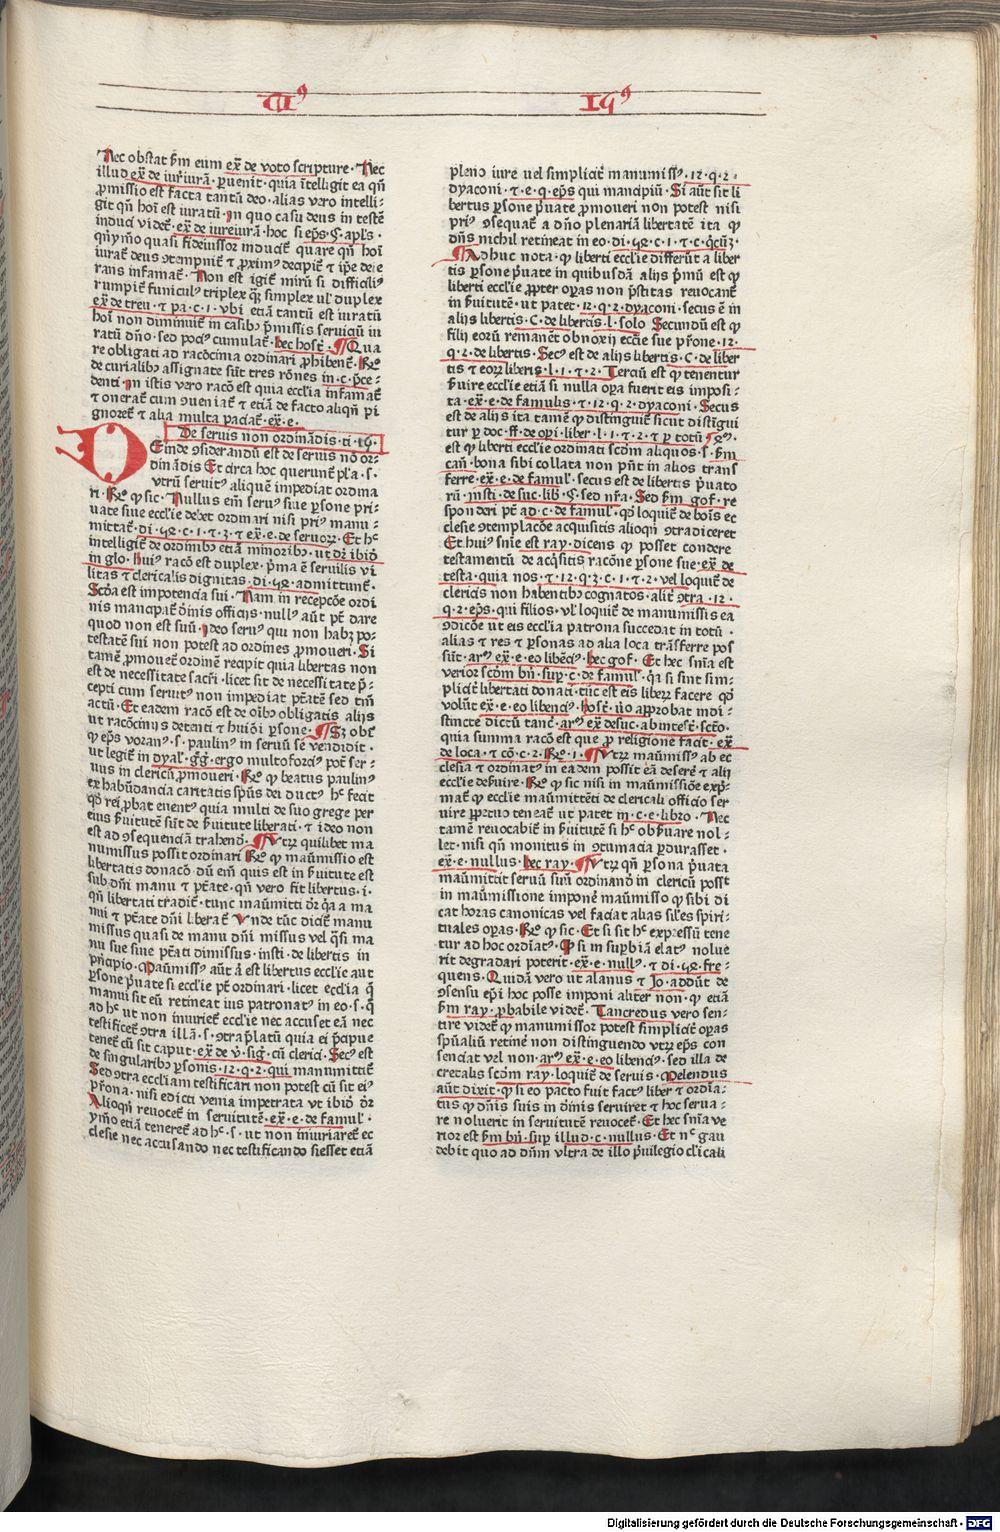 Tit⁹ 19⁹
Nec obstat ẜm eum ex̄ de voto scripture · Nec
illud ex̄ de iureiurā · ꝑuenit · quia ītelligit ea qn̄
ꝓmissio est facta tantū deo · alias vero intelli-
git qn̄ hoī est iuratū · In quo casu deus in testē
inducī videt̄ · ex̄ de iureiurā · hoc si ep̄s · § · apl's ·
qn̄ ymo quasi fideiussor inducit̄ quare qn̄ hoī
iurat̄ deus ꝯtempnit̄ ⁊ ꝓxim⁹ decipit̄ ⁊ ip̄e deie
rans infamat̄ · Non est igit̄ mirū si difficili⁹
rumpit̄ funicul⁹ triplex qᷓ simplex ul' duplex
ex̄ de treu · ⁊ pa · c · 1 · vbi etiā tantū est iuratū
hoī non diminuit̄ in casib⁹ ꝓmissis seruiciū iu
ratū dn̄o · sed poci⁹ cumulat̄ · hec host̄ · ¶ Qua
re obligati ad racōcinia ordinari ꝓhibent̄ · Rn̄o
de curialib⁹ assignate sūt tres rōnes in · c · p̄ce-
denti · In istis vero racō est quia eccl'ia infamat̄
⁊ onerat̄ cum ꝯueniat̄ ⁊ etiā de facto aliqn̄ pi
gnoret̄ ⁊ alia multa paciat̄ · ex̄ · e ·
De seruis non ordinādis · ti · 19 ·
DEinde ꝯsiderandū est de seruis nō or-
dinādis Et circa hoc querunt̄ pl'a · s ·
vtrū seruit⁹ aliquē impediat ordina
ri · Rn̄o ꝙ sic · Nullus em̄ seru⁹ siue ꝑsone pri-
uate siue eccl'ie debet ordinari nisi pri⁹ manu-
mittat̄ · di · 54 · c · 1 · ⁊ · 3 · ⁊ ex̄ · e · de seruoꝝ · Et h̄c
intelligit̄ de ordinib⁹ etiā minorib⁹ · ut dr̄ ibiō
in glo · hui⁹ racō est duplex · p̄ma ē seruilis vi
litas ⁊ clericalis dignitas · di · 54 · admittunt̄ ·
Scd̄a est impotencia sui · Nam in recepcōe ordi
nis mancipat̄ d̄inis officijs · null⁹ aūt pt̄ dare
quod non est suū · Ideo seru⁹ qui non habꝫ po-
testatē sui non potest ad ordines ꝓmoueri · Si
tamē ꝓmouet̄ ordinē recipit quia libertas non
est de necessitate sacr̄i · licet sit de necessitate p̄-
cepti cum seruit⁹ non impediat ptātē sed tm̄
actū · Et eadem racō est de oīb⁹ obligatis alijs
ut racōcinijs detenti ⁊ hui⁹di ꝑsone · ¶ Sꝫ obst̄
ꝙ ep̄s voran⁹ · s · paulin⁹ in seruū se vendidit ·
ut legit̄ in dyal' · gḡ · ergo multoforci⁹ pot̄ ser-
uus in clericū ꝓmoueri · Rn̄o ꝙ beatus paulin⁹
ex habūdancia caritatis sp̄us dei duct⁹ h̄c fecit
qd̄ rei ꝓbat euent⁹ quia multi de suo grege per
eius ẜuitutē sūt de ẜuitute liberati · ⁊ ideo non
est ad ꝯsequenciā trahend̄ · ¶ Vtꝝ quilibet ma
numissus possit ordinari Rn̄o ꝙ maūmissio est
libertatis donacō · dū em̄ quis est in ẜuitute est
sub dn̄i manu ⁊ ptāte · qn̄ vero fit libertus · i ·
qn̄ libertati tradit̄ · tunc maūmitti dr̄ qͣ a ma
nu ⁊ ptāte dn̄i liberat̄ Vnde tūc dicit̄ manu
missus quasi de manu dn̄i missus vel qͣsi ma
nu sue siue ptāti dimissus · insti · de libertis in
pn̄cipio · Maūmiss⁹ aūt ā est libertus eccl'ie aut
ꝑsone p̄uate si eccl'ie pt̄ ordinari · licet eccl'ia qͣ
manu sit eū retineat ius patronat⁹ in eo · s · qͣ
ad h̄c ut non iniuriet̄ eccl'ie nec accuset eā nec
testificet̄ ꝯtra illā · s · ꝯtra p̄latū quia ei p̄cipue
tenet̄ cū sit caput · ex̄ de v̄ · siḡ · cū clerici · Sec⁹ est
de singularib⁹ ꝑsonis · 12 · q · 2 · qui manumittit̄
Sed ꝯtra eccl'iam testificari non potest cū sit ei⁹
pr̄ona · nisi edicti venia impetrata vt ibiō dr̄
Alioqn̄ reuocet̄ in seruitutē · ex̄ · e · de famul' ·
ymo etiā teneret̄ ad h̄c · s · ut non iniuriaret̄ ec
clesie nec accusando nec testificando si esset etiā
pleno iure uel simplicit̄ manumiss⁹ · 12 · q · 2 ·
dyaconi · ⁊ · e · q · ep̄s qui mancipiū · Si aūt sit li
bertus ꝑsone p̄uate ꝓmoueri non potest nisi
pri⁹ ꝯsequat̄ a dn̄o plenariā libertatē ita ꝙ
dn̄s nichil retineat in eo · di · 54 · c · 1 · ⁊ · c · qͥcūꝫ ·
¶ Adhuc nota · ꝙ liberti eccl'ie differūt a liber
tis ꝑsone p̄uate in quibusdā alijs p̄mū est ꝙ
liberti eccl'ie ꝓpter oꝑas non p̄stitas reuocant̄
in ẜuitutē · ut patet · 12 · q · 2 · dyaconi · secus ē in
alijs libertis · C · de libertis · l · solo Secundū est ꝙ
filij eorū remanēt obnoxij eccl'ie sue pr̄one · 12 ·
q · 2 · de libertis · Sec⁹ est de alijs libertis · C · de liber
tis ⁊ eoꝝ liberis · l · 1 · ⁊ · 2 · Terciū est ꝙ tenentur
ẜuire eccl'ie etiā si nulla oꝑa fuerit eis imposi-
ta · ex̄ · e · de famulis · ⁊ · 12 · q · 2 · dyaconi · Secus
est de alijs ita tamē ꝙ distinguit̄ sicut distīgui
tur ꝑ doc · ff · de oꝑi · liber · l · 1 · ⁊ · 2 · ⁊ ꝑ totū · 4⁹ ·
est ꝙ liberti eccl'ie ordinati scd̄m aliquos · s · ẜm
can̄ · bona sibi collata non pn̄t in alios trans
ferre · ex̄ · e · de famul' · secus est de libertis p̄uato
rū · insti · de suc · lib · § · sed nr̄a · Sed ẜm gof · re
sponderi pt̄ ad · c · de famul' · qd̄ loquit̄ de boīs ec
clesie ꝯtemplacōe acquisitis alioqn̄ ꝯtradiceret
Et hui⁹ sn̄ie est ray · dicens ꝙ posset condere
testamentū de acq̄sitis racōne ꝑsone sue · ex̄ de
testa · quia nos · ⁊ · 12 · q · 3 · c · 1 · ⁊ · 2 · vel loquit̄ de
clericis non habentib⁹ cognatos · alit̄ ꝯtra · 12 ·
q · 2 · ep̄s · qui filios · vl' loquit̄ de manumissis ea
ꝯdicōe ut eis eccl'ia patrona succedat in totū ·
alias ⁊ res ⁊ ꝑsonas ad alia loca trāsferre pos
sūt · ar⁹ ex̄ · e · eo libēci⁹ · hec gof · Et hec sn̄ia est
verior scd̄m bn̄ · suꝑ · c · de famul' · qͣ si sint sim-
plicit̄ libertati donati · tūc est eis liberꝝ facere qd̄
volūt ex̄ · e · eo libenci⁹ · host̄ · v̊o approbat indi-
stincte dictū tanc̄ · ar⁹ ex̄ de suc · ab intest̄ · sct̄o ·
quia summa racō est que ꝓ religione facit · ex̄
de loca · ⁊ cō · c · 2 · Rn̄o · 1 · ¶ Vtꝝ maūmiss⁹ ab ec
clesia ⁊ ordinat⁹ in eadem possit eā deserē ⁊ alij
eccl'ie deẜuire · Rn̄o ꝙ sic nisi in maūmissiōe exp̄-
mat̄ ꝙ eccl'ie maūmittēti de clericali officio ser
uire ꝑpetuo teneat̄ ut patet in · c · e · libro · Nec
tamē reuocabit̄ in ẜuitutē si h̄c obẜuare nol-
let · nisi qn̄ monitus in ꝯtumacia ꝑdurasset ·
ex̄ · e · nullus · hec ray · ¶ Vtꝝ qn̄ ꝑsona p̄uata
maūmittit seruū suū ordinand̄ in clericū possit
in maūmissione imponē maūmisso ꝙ sibi di
cat horas canonicas vel faciat alias sil'es spiri-
tuales oꝑas · Rn̄o ꝙ sic · Et si sit h̄c expressū tene
tur ad hoc ordiat⁹ · Qd̄ si in suꝑbiā elat⁹ nolue
rit degradari poterit · ex̄ · e · null⁹ · ⁊ di · 54 · fre-
quens · Quidā vero ut alanus ⁊ Io · addūt de
ꝯsensu ep̄i hoc posse imponi aliter non · ꝙ etiā
ẜm ray · ꝓbabile videt̄ · Tancredus vero sen-
tire videt̄ ꝙ manumissor potest simplicit̄ oꝑas
sp̄ualiū retinē non distinguendo vtꝝ ep̄s con
senciat vel non · ar⁹ ex̄ · e · eo libenci⁹ · sed illa de
cretalis scd̄m ray · loquit̄ de seruis · Melendus
aūt dixit · ꝙ si eo pacto fuit fact⁹ liber ⁊ ordia-
tus ꝙ dn̄is suis in d̄inis seruiret ⁊ hoc serua-
re noluerit in seruitutē reuocet̄ · Et hec sn̄ia ve
rior est ẜm bn̄ · suꝑ illud · c · nullus · Et n̄c gau
debit quo ad dn̄m vltra de illo p̄uilegio cl'icali
Digitalisierung gefördert durch die Deutsche Forschungsgemeinschaft - DFG